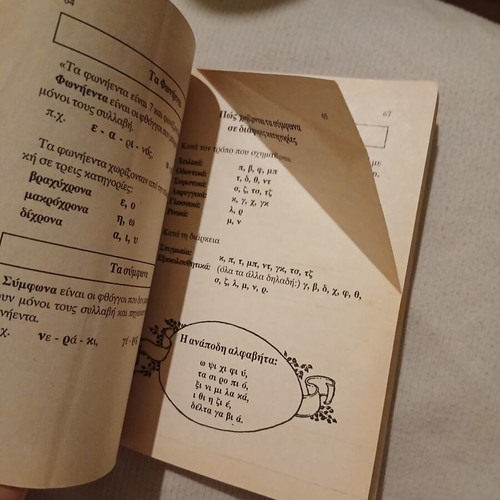 64
Τα Φωνήεντα
«Τα φωνήεντα είναι 7 και
Φωνήεντα είναι οι φθόγγοι που
μόνοι τους συλλαβή.
π.χ. ε - α - ρι - νός,
Τα φωνήεντα χωρίζονται από την
κή σε τρεις κατηγορίες:
βραχύχρονα ε, ο
μακρόχρονα η, ω
δίχρονα α, ι, υ
Τα σύμφωνα
Σύμφωνα είναι οι φθόγγοι που δεν
ουν μόνοι τους συλλαβή και
νήεντα.
χ. νε - ρά - κι,
65
67
Πώς χωρίζονται τα σύμφωνα
σε διάφορες κατηγορίες
Κατά τον τρόπο που σχηματίζονται
με
Χειλικά: π, β, φ, μπ
Οδοντικά: τ, δ, θ, ντ
Συριστικά: σ, ζ, τσ, τζ
Λαρυγγικά: κ, γ, χ, γκ
Γλωσσικά: λ, ρ
Ρινικά: μ, ν
Κατά τη διάρκεια
Στιγμιαία: κ, π, τ, μπ, ντ, γκ, τσ, τζ
Εξακολουθητικά: (όλα τα άλλα δηλαδή:) γ, β, δ, χ, φ, θ,
σ, ζ, λ, μ, ν, ρ.
Η ανάποδη αλφαβήτα:
ω ψι χι φι ύ,
τα σι ρο πι ό,
ξι νι μι λα κά,
ι θι η ζι έ,
δέλτα γα βι ά.